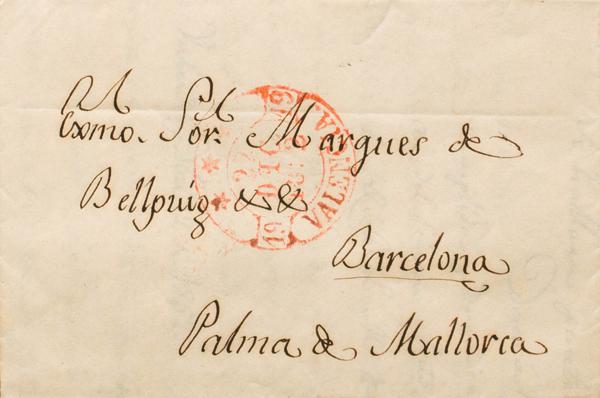 Al
Exmo. Sor. Marques de
Bellpuig &&
Barcelona
Palma de Mallorca
VALENCIA.
19